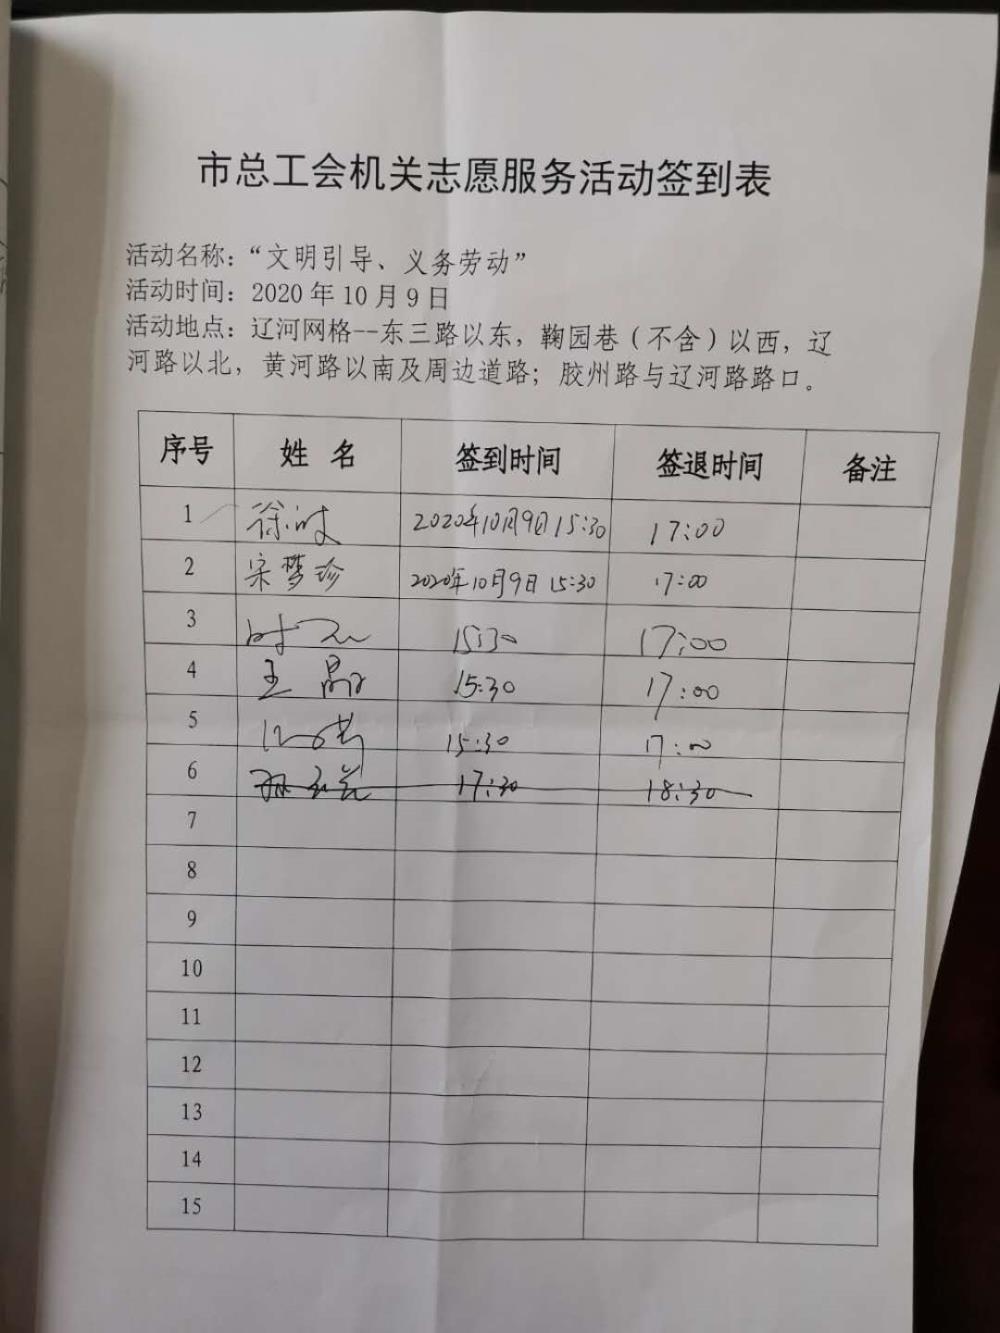 市总工会机关志愿服务活动签到表
活动名称：“文明引导、义务劳动”
活动时间：2020 年 10 月 9 日
活动地点：辽河网格--东三路以东，鞠园巷（不含）以西，辽
河路以北，黄河路以南及周边道路；胶州路与辽河路路口。
序号 姓 名 签到时间 签退时间 备注
1 徐 2020年10月9日15:30 17:00
2 宋梦珍 2020年10月9日 15:30 17:00
3 15:30 17:00
4 王晶 15:30 17:00
5 15:30 17:00
6 17:30 18:30
7
8
9
10
11
12
13
14
15